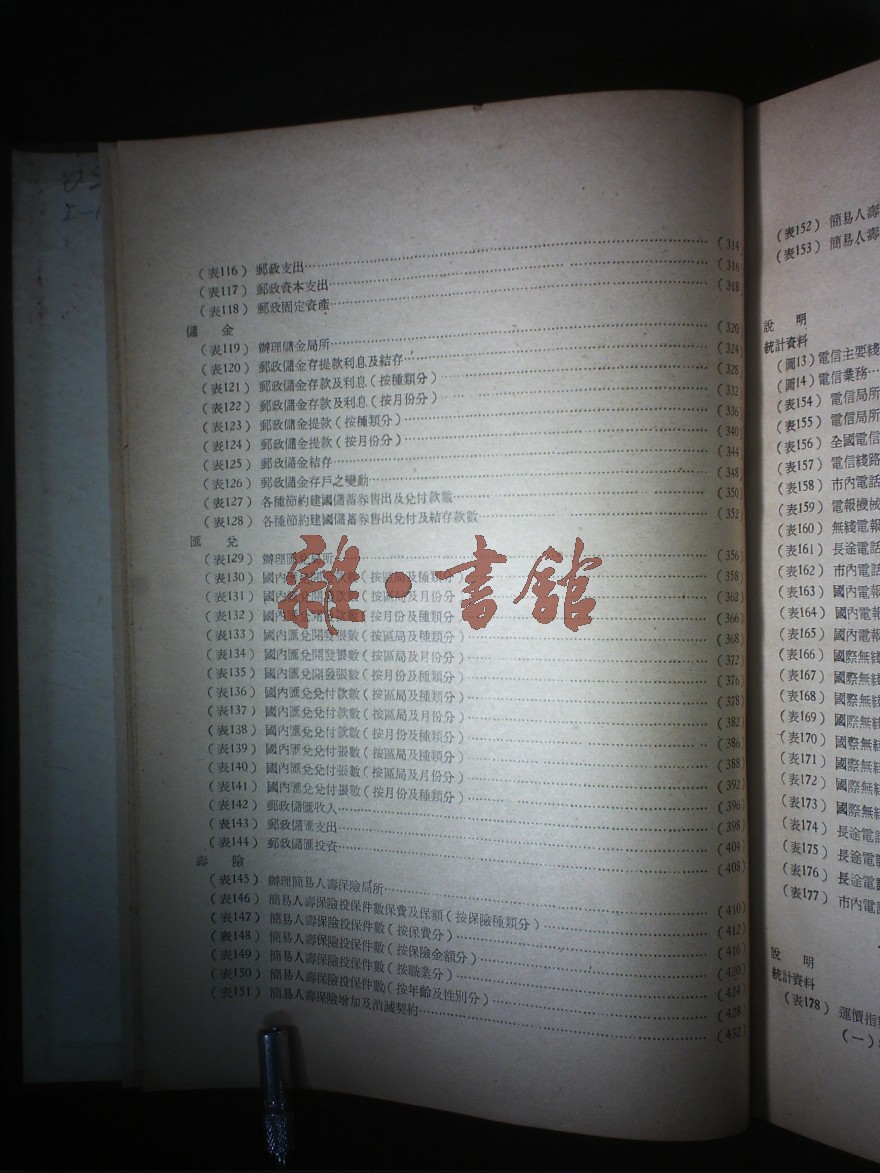 (表116) 郵政支出……(314)
(表117) 郵政資本支出……(316)
(表118) 郵政固定資產……(318)
儲 金
(表119) 辦理儲金局所……(320)
(表120) 郵政儲金存提款利息及結存……(324)
(表121) 郵政儲金存款及利息(按種類分)……(328)
(表122) 郵政儲金存款及利息(按月份分)……(332)
(表123) 郵政儲金提款(按種類分)……(336)
(表124) 郵政儲金提款(按月份分)……(340)
(表125) 郵政儲金結存……(344)
(表126) 郵政儲金存戶之變動……(348)
(表127) 各種節約建國儲蓄券售出及兌付款數……(350)
(表128) 各種節約建國儲蓄券售出兌付及結存款數……(352)
匯 兌
(表129) 辦理匯兌局所……(356)
(表130) 國內匯兌開發款數(按區局及種類分)……(358)
(表131) 國內匯兌開發款數(按區局及月份分)……(362)
(表132) 國內匯兌開發款數(按月份及種類分)……(366)
(表133) 國內匯兌開發張數(按區局及種類分)……(368)
(表134) 國內匯兌開發張數(按區局及月份分)……(372)
(表135) 國內匯兌開發張數(按月份及種類分)……(376)
(表136) 國內匯兌兌付款數(按區局及種類分)……(378)
(表137) 國內匯兌兌付款數(按區局及月份分)……(382)
(表138) 國內匯兌兌付款數(按月份及種類分)……(386)
(表139) 國內匯兌兌付張數(按區局及種類分)……(388)
(表140) 國內匯兌兌付張數(按區局及月份分)……(392)
(表141) 國內匯兌兌付張數(按月份及種類分)……(396)
(表142) 郵政儲匯收入……(398)
(表143) 郵政儲匯支出……(404)
(表144) 郵政儲匯投資……(408)
壽 險
(表145) 辦理簡易人壽保險局所……(410)
(表146) 簡易人壽保險投保件數保費及保額(按保險種類分)……(412)
(表147) 簡易人壽保險投保件數(按保費分)……(416)
(表148) 簡易人壽保險投保件數(按保險金額分)……(420)
(表149) 簡易人壽保險投保件數(按職業分)……(424)
(表150) 簡易人壽保險投保件數(按年齡及性別分)……(428)
(表151) 簡易人壽保險增加及消滅契約……(432)
雜·書館
(表152) 簡易人壽
(表153) 簡易人壽
說 明
統計資料
(圖13) 電信主要綫
(圖14) 電信業務…
(表154) 電信局所
(表155) 電信局所
(表156) 全國電信
(表157) 電信綫路
(表158) 市內電話
(表159) 電報機械
(表160) 無綫電報
(表161) 長途電話
(表162) 市內電話
(表163) 國內電報
(表164) 國內電報
(表165) 國內電報
(表166) 國際無綫
(表167) 國際無綫
(表168) 國際無綫
(表169) 國際無綫
(表170) 國際無綫
(表171) 國際無綫
(表172) 國際無綫
(表173) 國際無綫
(表174) 長途電話
(表175) 長途電話
(表176) 長途電話
(表177) 市內電話
說 明
統計資料
(表178) 運價指數
(一)